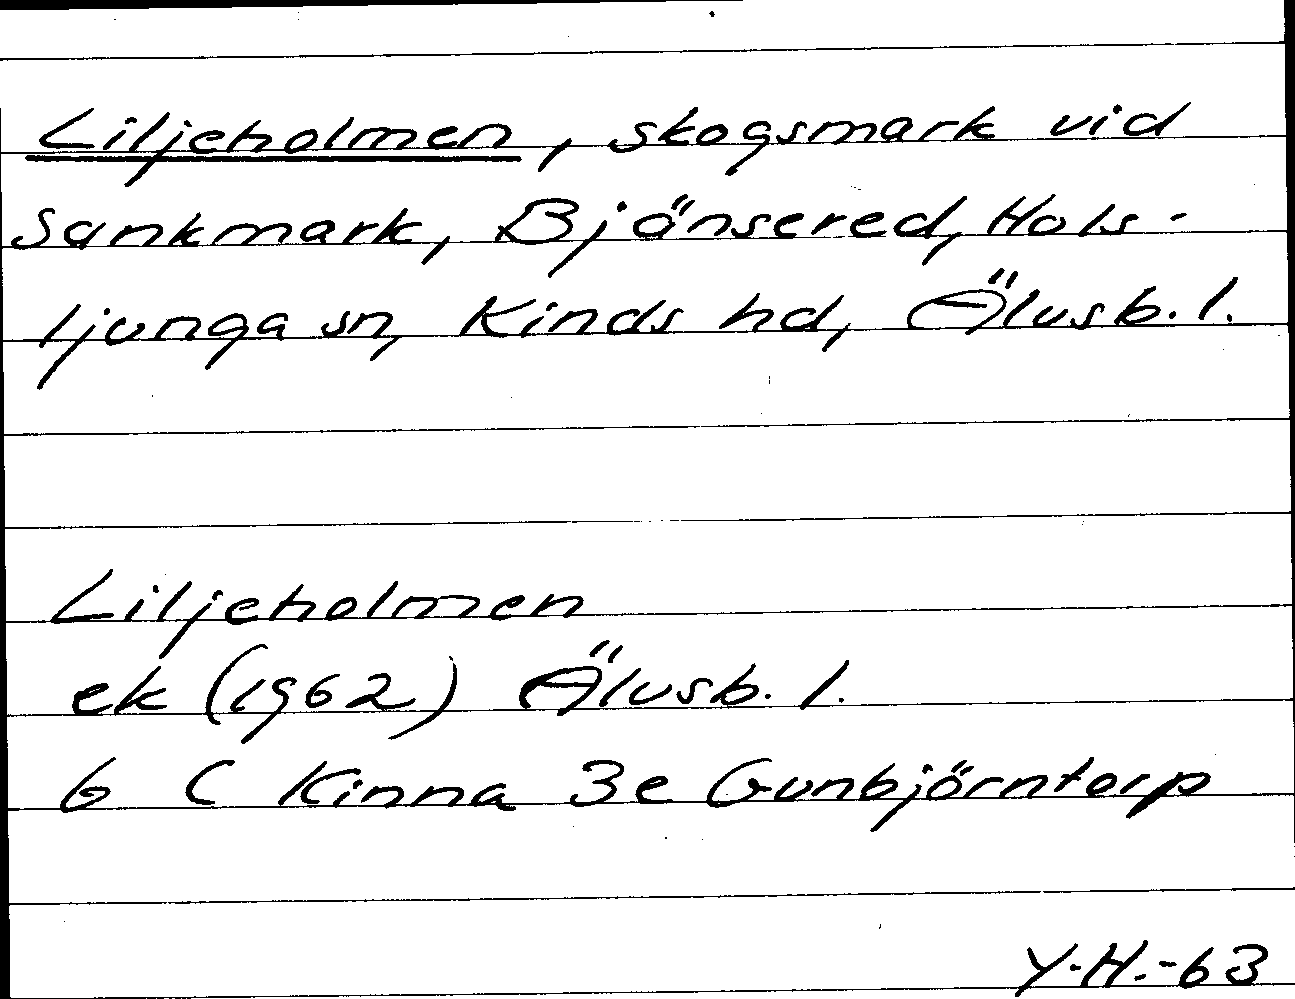 Liljeholmen, skogsmark vid
Sankmark, Bjönsered, Hols-
ljunga sn, Kinds hd, Älvsb. l.
Liljeholmen
ek (1962) Älvsb. l.
6 C Kinna 3e Gunbjörntorp
Y.H.-63